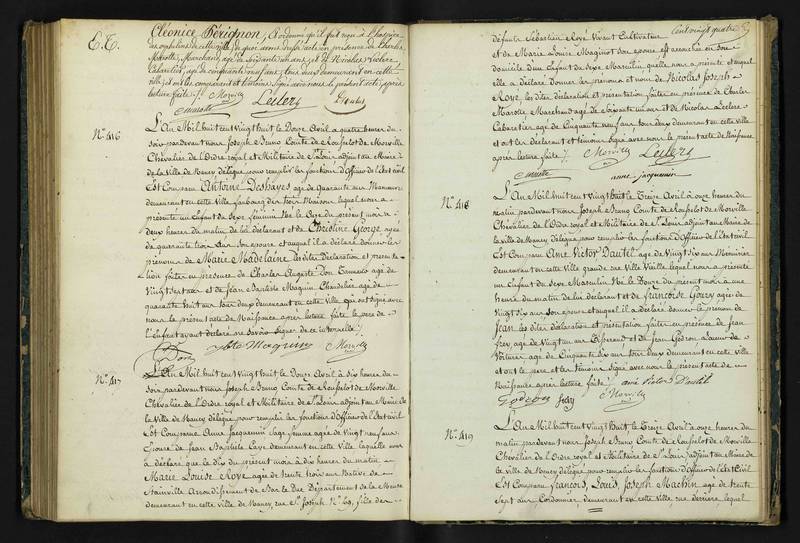 E.T.
Cléonice Pérignon, et ordonne qu'il fut mis à l'hospice
des orphelins de cette ville. De quoi avons dressé acte en présence de Charles
Marotte, Marchand, âgé de soixante un ans, et de Nicolas Leclerc
Cabaretier, âgé de cinquante neuf ans, tous deux demeurant en cette
ville, et ont les comparant et témoins signé avec nous le présent acte, après
lecture faite ./. Morville
Marotte Leclerc
N.° 416
L'An Mil huit cent vingt huit le Douze Avril à quatre heures du
soir pardevant nous Joseph Bruno Comte de Rousselot de Morville
Chevalier de l'Ordre royal et Militaire de St. Louis adjoint au Maire
de la Ville de Nancy délégué pour remplir les fonctions d'officier de l'état civil
Est Comparu Antoine Deshayes âgé de Quarante ans Manœuvre
demeurant en cette Ville, faubourg des trois Maisons lequel nous a
présenté un Enfant du Sexe féminin Née le Onze du présent mois à
deux heures du matin de lui déclarant et de Christine George âgée
de quarante trois ans son épouse et auquel il a déclaré donner les
prénoms de Marie Madelaine les dites déclaration et présenta-
tion faites en présence de Charles Auguste Don Commis âgé de
vingt sept ans et de Jean Baptiste Maquin Chandelier âgé de
quarante huit ans tous deux demeurant en cette Ville qui ont signé avec
nous le présent acte de Naissance après lecture faite le père de
l'Enfant ayant déclaré ne savoir signer de ce interpellé ./.
Don Jbte Maquin Morville
N.° 417
L'An Mil huit cent vingt huit le Douze Avril à dix heures du
soir pardevant nous Joseph Bruno Comte de Rousselot de Morville
Chevalier de l'Ordre royal et Militaire de St. Louis adjoint au Maire de
la Ville de Nancy délégué pour remplir les fonctions d'officier de l'état civil
Est Comparue Anne Jacquemin Sage femme âgée de Vingt neuf ans
Epouse de Jean Baptiste Caye demeurant en cette Ville laquelle nous
a déclaré que le dix du présent mois à dix heures du matin
Marie Louise Roye âgée de trente trois ans Native de
Stainville Arrondissement de Bar le Duc Département de la Meuse
demeurant en cette ville de Nancy, rue St. Joseph N.° 49, fille de
cent vingt quatre
défunts Sébastien Roye Vivant Cultivateur
et de Marie Louise Maginot son épouse est accouchée en son
domicile d'un Enfant du Sexe Masculin quelle nous a présenté et auquel
elle a déclaré donner les prénoms et noms de Nicolas Joseph
Roye, les dites déclaration et présentation faites en présence de Charles
Marotte Marchand âgé de soixante un ans et de Nicolas Leclerc
Cabaretier âgé de Cinquante Neuf ans tous deux demeurant en cette ville
et ont les déclarant et témoins signé avec nous le présent acte de Naissance
après lecture faite ./. Morville Leclerc
Marotte anne jacquemin
N.° 418
L'An Mil huit cent Vingt huit le Treize Avril à onze heures du
matin pardevant nous Joseph Bruno Comte de Rousselot de Morville
Chevalier de l'Ordre royal et Militaire de St. Louis adjoint au Maire de
la ville de Nancy délégué pour remplir les fonctions d'officier de l'état civil
Est Comparu Aimé Victor Dautel âgé de Vingt six ans Menuisier
demeurant en cette Ville grande rue Ville Vieille lequel nous a présenté
un Enfant du Sexe Masculin Né le Douze du présent mois à une
heure du matin de lui déclarant et de françoise Gouzy âgée de
Vingt six ans son épouse et auquel il a déclaré donner le prénom de
Jean les dites déclaration et présentation faites en présence de Jean
âgé de Vingt un ans et Jean Loueur de
Voitures âgé de Cinquante six ans tous deux demeurant en cette ville
et ont le père et les témoins signé avec nous le présent acte de
Naissance après lecture faite ./. aimé Victor Dautel
Morville
N.° 419
L'An Mil huit cent Vingt huit le Treize Avril à onze heures du
matin pardevant nous Joseph Bruno Comte de Rousselot de Morville
Chevalier de l'Ordre royal et Militaire de St. Louis adjoint au Maire de
la ville de Nancy délégué pour remplir les fonctions d'officier de l'état Civil
Est Comparu françois, Louis, Joseph Machin âgé de trente
Sept ans Cordonnier, demeurant en cette ville rue derrière, lequel